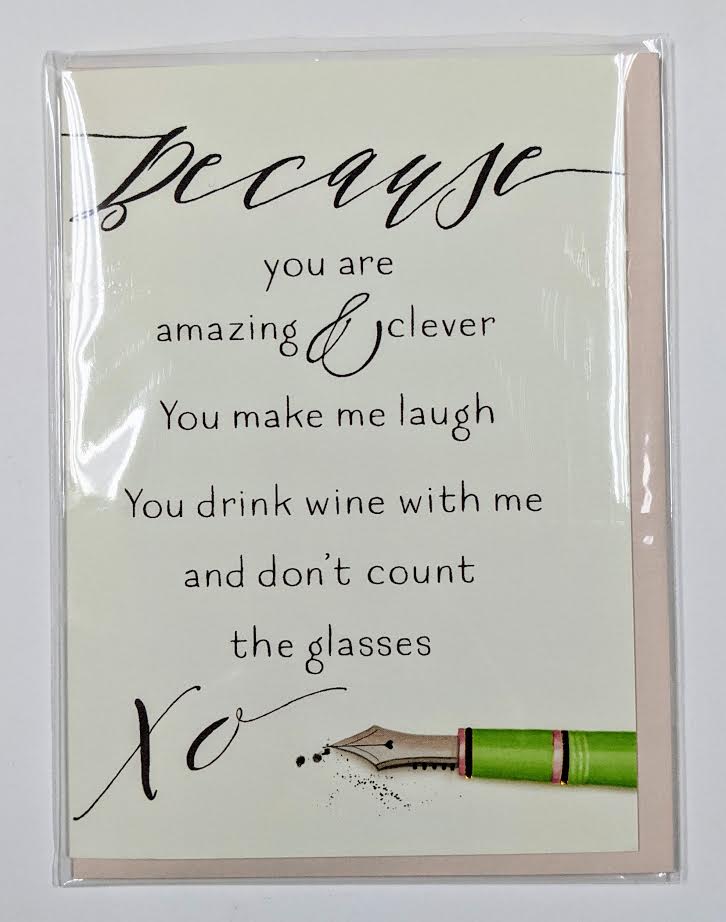 because
you are
amazing & clever
You make me laugh
You drink wine with me
and don't count
the glasses
xo